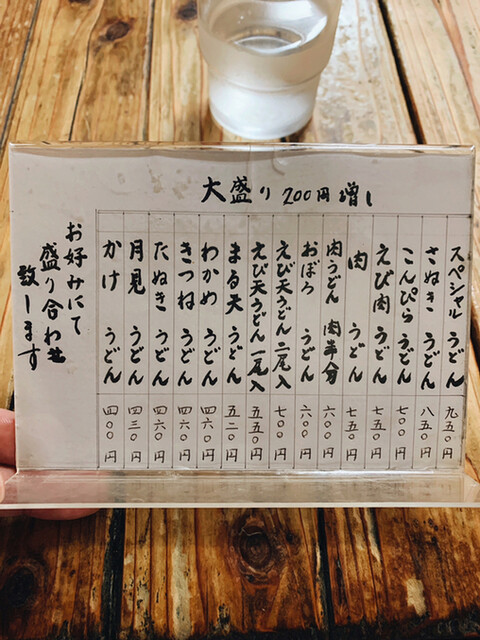 大盛り 200円増し
スペシャルうどん 九五〇円
さぬきうどん 八五〇円
こんぴらうどん 七〇〇円
えび肉うどん 七五〇円
肉うどん 七五〇円
肉うどん 肉半分 六〇〇円
おぼろうどん 六〇〇円
えび天うどん 二尾入 七〇〇円
えび天うどん 一尾入 五五〇円
まる天うどん 五二〇円
わかめうどん 四六〇円
きつねうどん 四六〇円
たぬきうどん 四六〇円
月見うどん 四三〇円
かけうどん 四〇〇円
お好みにて
盛り合わせ
致します